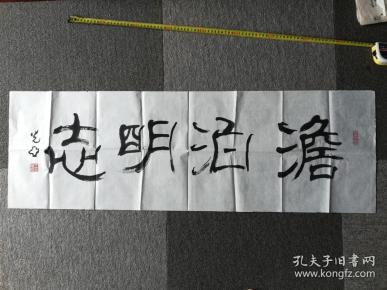 澹泊明志
孔夫子旧书网
www.kongfz.com